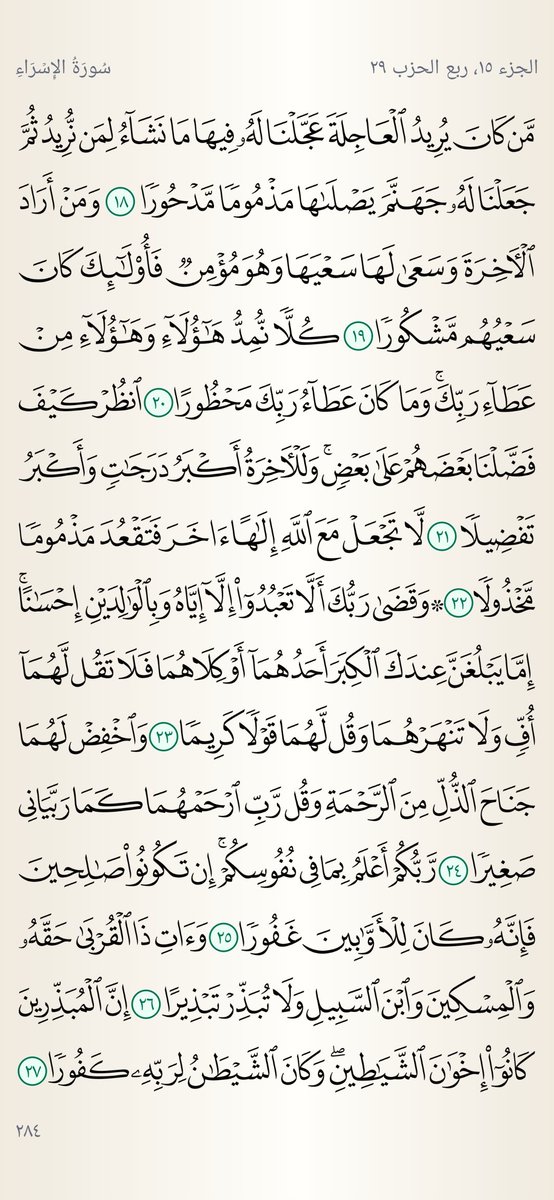 الجزء ١٥، ربع الحزب ٢٩ سُورَةُ الإِسْرَاءِ
مَّن كَانَ يُرِيدُ ٱلْعَاجِلَةَ عَجَّلْنَا لَهُۥ فِيهَا مَا نَشَآءُ لِمَن نُّرِيدُ ثُمَّ
جَعَلْنَا لَهُۥ جَهَنَّمَ يَصْلَىٰهَا مَذْمُومًا مَّدْحُورًا ١٨ وَمَنْ أَرَادَ
ٱلْأَخِرَةَ وَسَعَىٰ لَهَا سَعْيَهَا وَهُوَ مُؤْمِنٌ فَأُو۟لَـٰٓئِكَ كَانَ
سَعْيُهُم مَّشْكُورًا ١٩ كُلًّا نُّمِدُّ هَـٰٓؤُلَآءِ وَهَـٰٓؤُلَآءِ مِنْ
عَطَآءِ رَبِّكَ ۚ وَمَا كَانَ عَطَآءُ رَبِّكَ مَحْظُورًا ٢٠ ٱنظُرْ كَيْفَ
فَضَّلْنَا بَعْضَهُمْ عَلَىٰ بَعْضٍ ۚ وَلَلْأَخِرَةُ أَكْبَرُ دَرَجَـٰتٍ وَأَكْبَرُ
تَفْضِيلًا ٢١ لَّا تَجْعَلْ مَعَ ٱللَّهِ إِلَـٰهًا ءَاخَرَ فَتَقْعُدَ مَذْمُومًا
مَّخْذُولًا ٢٢ * وَقَضَىٰ رَبُّكَ أَلَّا تَعْبُدُوٓا۟ إِلَّآ إِيَّاهُ وَبِٱلْوَٰلِدَيْنِ إِحْسَـٰنًا ۚ
إِمَّا يَبْلُغَنَّ عِندَكَ ٱلْكِبَرَ أَحَدُهُمَآ أَوْ كِلَاهُمَا فَلَا تَقُل لَّهُمَآ
أُفٍّ وَلَا تَنْهَرْهُمَا وَقُل لَّهُمَا قَوْلًا كَرِيمًا ٢٣ وَٱخْفِضْ لَهُمَا
جَنَاحَ ٱلذُّلِّ مِنَ ٱلرَّحْمَةِ وَقُل رَّبِّ ٱرْحَمْهُمَا كَمَا رَبَّيَانِى
صَغِيرًا ٢٤ رَّبُّكُمْ أَعْلَمُ بِمَا فِى نُفُوسِكُمْ ۚ إِن تَكُونُوا۟ صَـٰلِحِينَ
فَإِنَّهُۥ كَانَ لِلْأَوَّٰبِينَ غَفُورًا ٢٥ وَءَاتِ ذَا ٱلْقُرْبَىٰ حَقَّهُۥ
وَٱلْمِسْكِينَ وَٱبْنَ ٱلسَّبِيلِ وَلَا تُبَذِّرْ تَبْذِيرًا ٢٦ إِنَّ ٱلْمُبَذِّرِينَ
كَانُوٓا۟ إِخْوَٰنَ ٱلشَّيَـٰطِينِ ۖ وَكَانَ ٱلشَّيْطَـٰنُ لِرَبِّهِۦ كَفُورًا ٢٧
٢٨٤